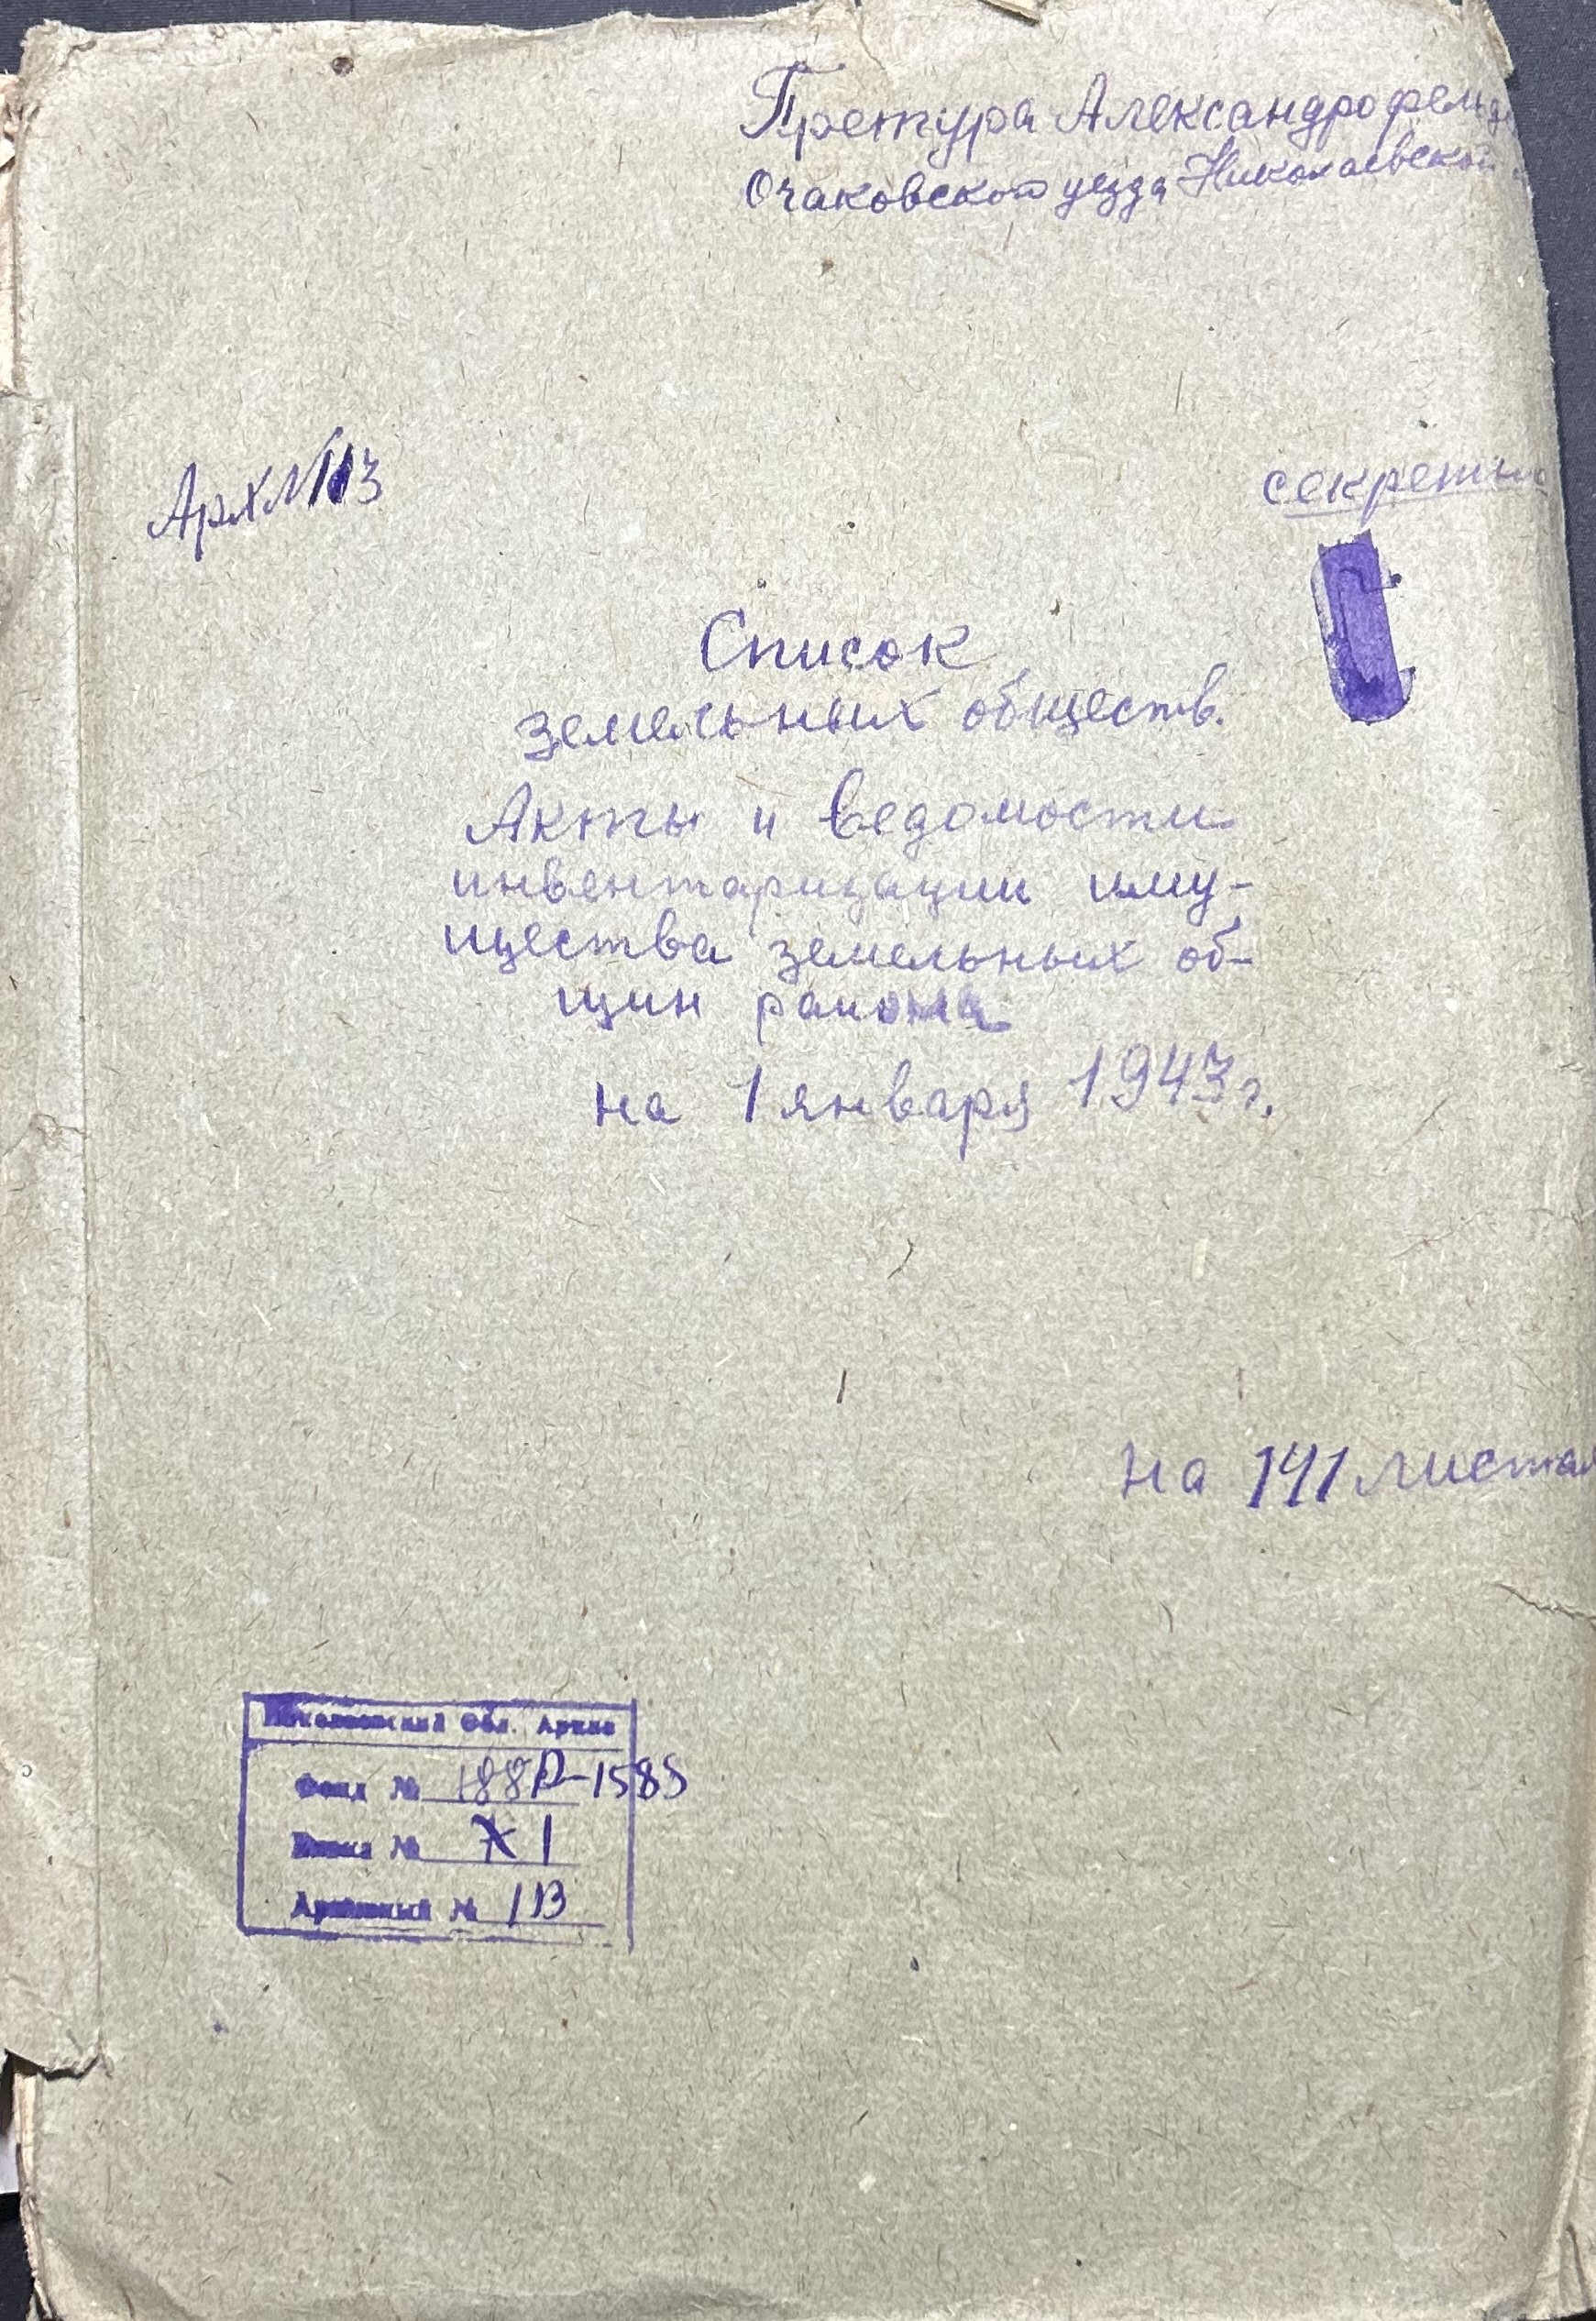 Претура Александрофельд
Очаковского уезда Николаевской
Арх №113
секретно
Список
земельных обществ.
Акты и ведомости
инвентаризации иму-
щества земельных об-
щин района
на 1 января 1943 г.
на 141 листах
Николаевский Обл. Архив
Фонд № 188 Р-1585
№ 1
Архивный № 113